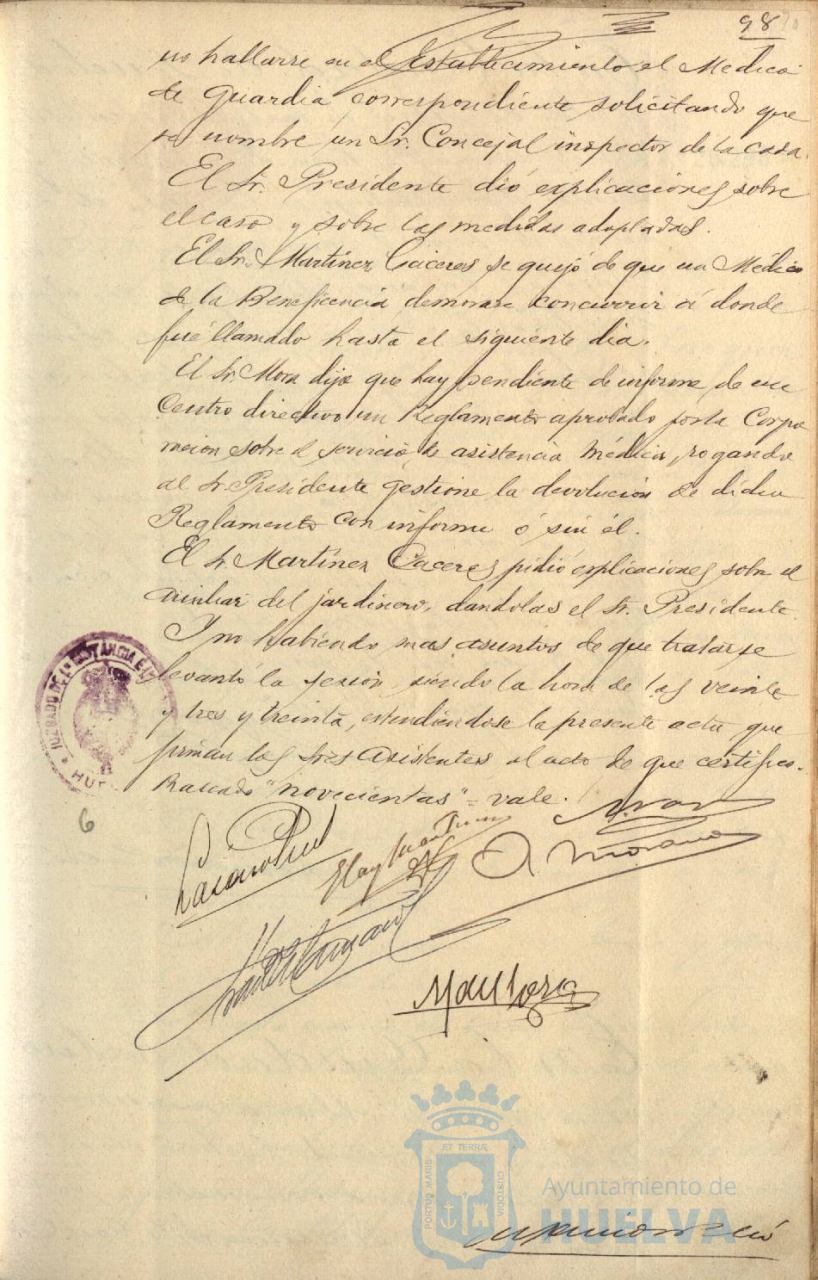 98
no hallarse en el Establecimiento el Medico
de Guardia correspondiente solicitando que
se nombre un Sr. Concejal inspector de la casa.
El Sr. Presidente dió explicaciones sobre
el caso y sobre las medidas adoptadas.
El Sr. Martinez Cáceres se quejó de que un Médico
de la Beneficencia demorase concurrir á donde
fué llamado hasta el siguiente dia.
El Sr. Mora dijo que hay pendiente de informe de un
Centro directivo un Reglamento aprobado por la Corpo
racion sobre el servicio de asistencia médica, rogando
al Sr. Presidente gestione la devolución de dicho
Reglamento con informe ó sin él.
El Sr. Martínez Cáceres pidió explicaciones sobre el
auxiliar del jardinero, dandolas el Sr. Presidente.
Y no habiendo mas asuntos de que tratar se
levantó la sesion, siendo la hora de las veinte
y tres y treinta, estendiéndose la presente acta que
firman los Sres Asistentes al acto de que certifico.
Raspado "novecientas" = vale.
JUZGADO DE 1ª INSTANCIA
HU
6
ET TERRÆ
PORTUS MARIS
CUSTODIA
Ayuntamiento de
HUELVA